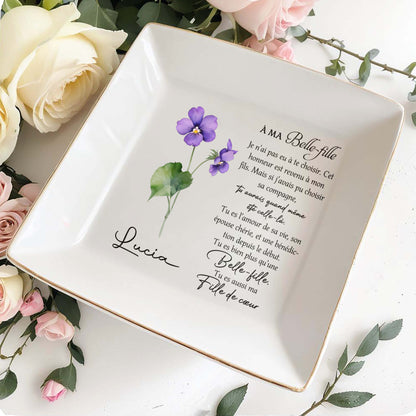 À MA Belle-fille
Je n'ai pas eu à te choisir. Cet
honneur est revenu à mon
fils. Mais si j'avais pu choisir
sa compagne,
tu aurais quand même
été celle-là.
Tu es l'amour de sa vie, son
épouse chérie, et une bénédic-
tion depuis le début.
Tu es bien plus qu'une
Belle-fille.
Tu es aussi ma
Fille de cœur
Lucia